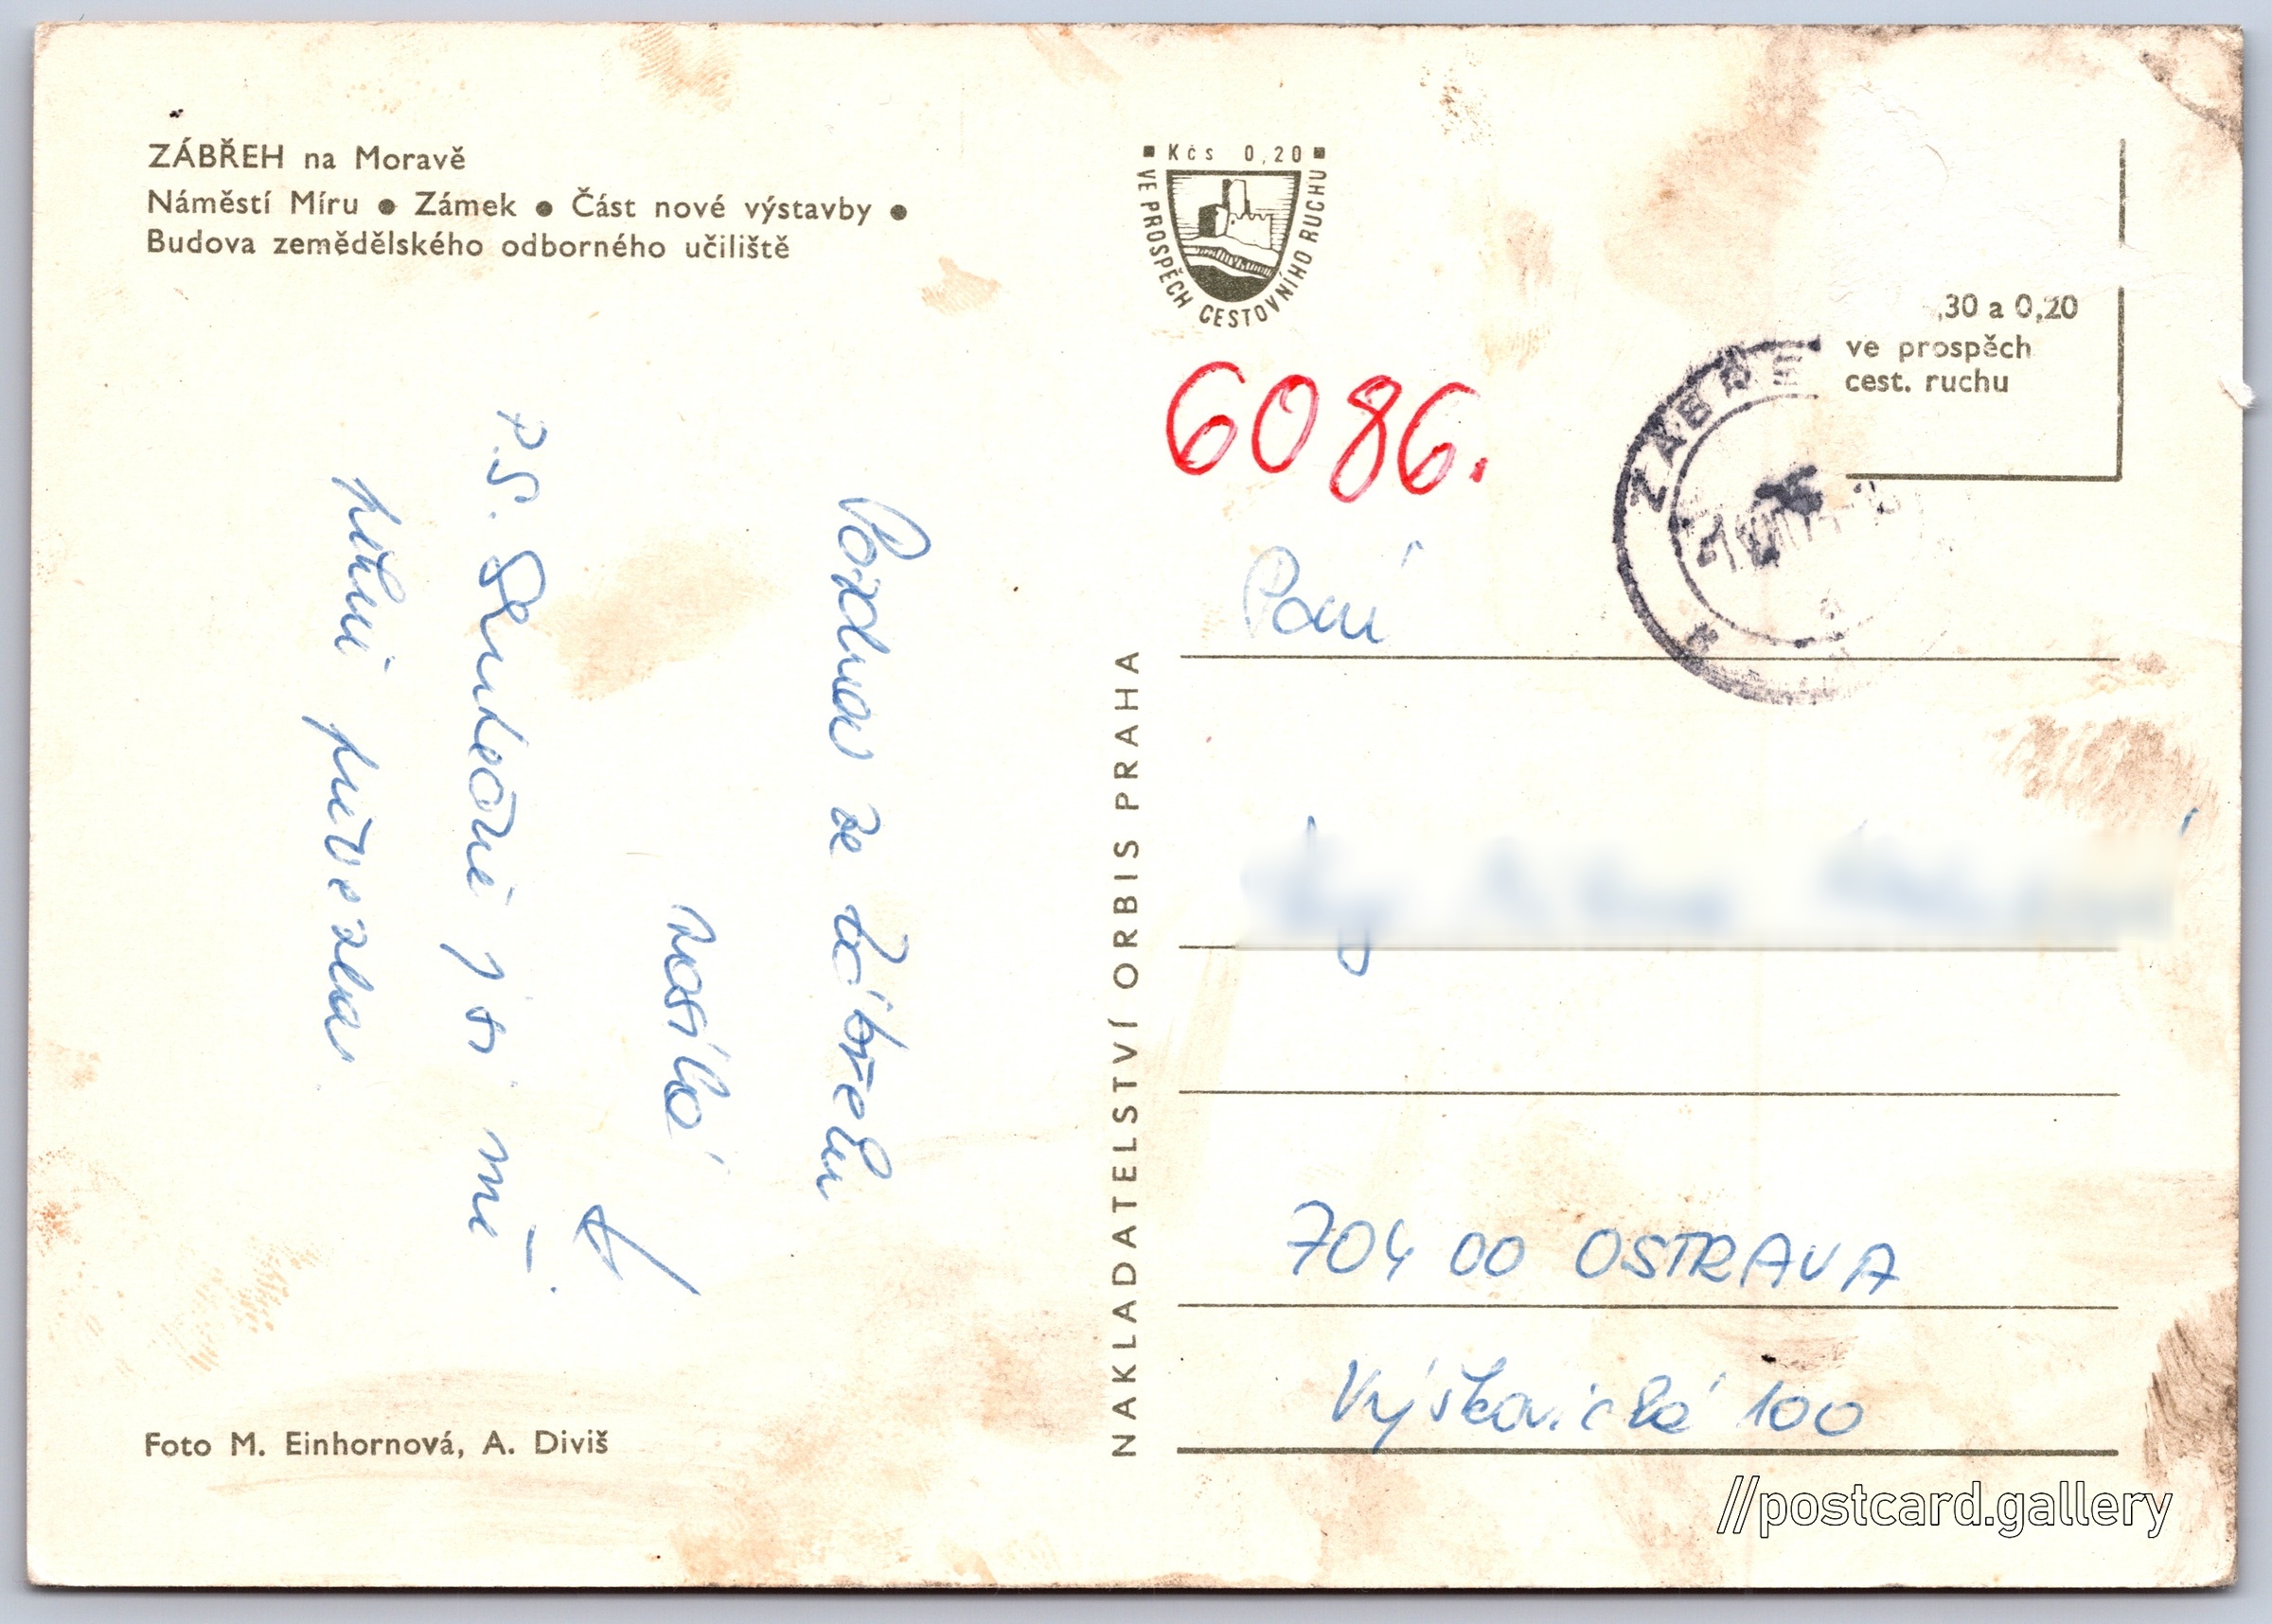 ZÁBŘEH na Moravě
Náměstí Míru ● Zámek ● Část nové výstavby ●
Budova zemědělského odborného učiliště
Pozdrav ze Zábřehu
zasílá
P.S. Skutečně jsi mě
přivezla
Foto M. Einhornová, A. Diviš
NAKLADATELSTVÍ ORBIS PRAHA
Kčs 0,20
VE PROSPĚCH CESTOVNÍHO RUCHU
6086.
,30 a 0,20
ve prospěch
cest. ruchu
ZÁBŘE
Paní
704 00 OSTRAVA
Výškovická 100
//postcard.gallery